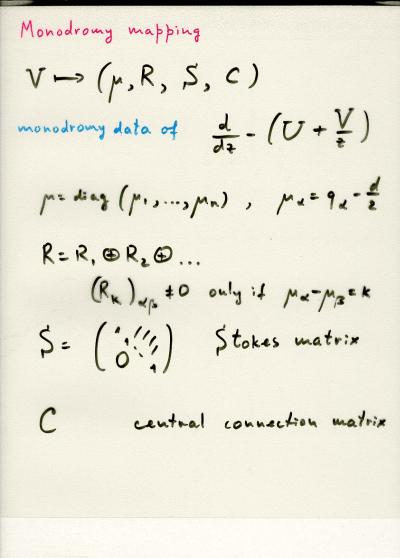 Monodromy mapping
V ↦ (μ, R, S, C)
monodromy data of d/dz - (U + V/z)
μ = diag (μ₁, ..., μₙ), μ_α = q_α - d/2
R = R₁ ⊕ R₂ ⊕ ...
(R_k)_αβ ≠ 0 only if μ_α - μ_β = k
S = (1 0 1) Stokes matrix
C central connection matrix